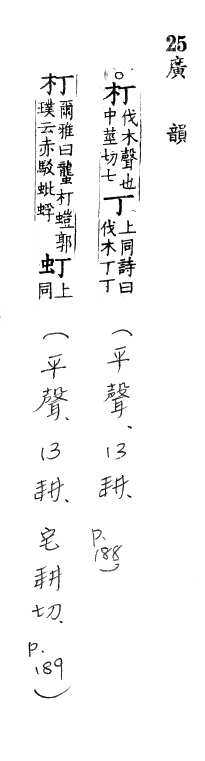 25 廣韻
○朾伐木聲也
中莖切七丁上同詩曰
伐木丁丁
（平聲、13耕、p.188）
朾爾雅曰蠪朾螘郭
璞云赤駁蚍蜉虰上
同
（平聲、13耕、宅耕切、p.189）